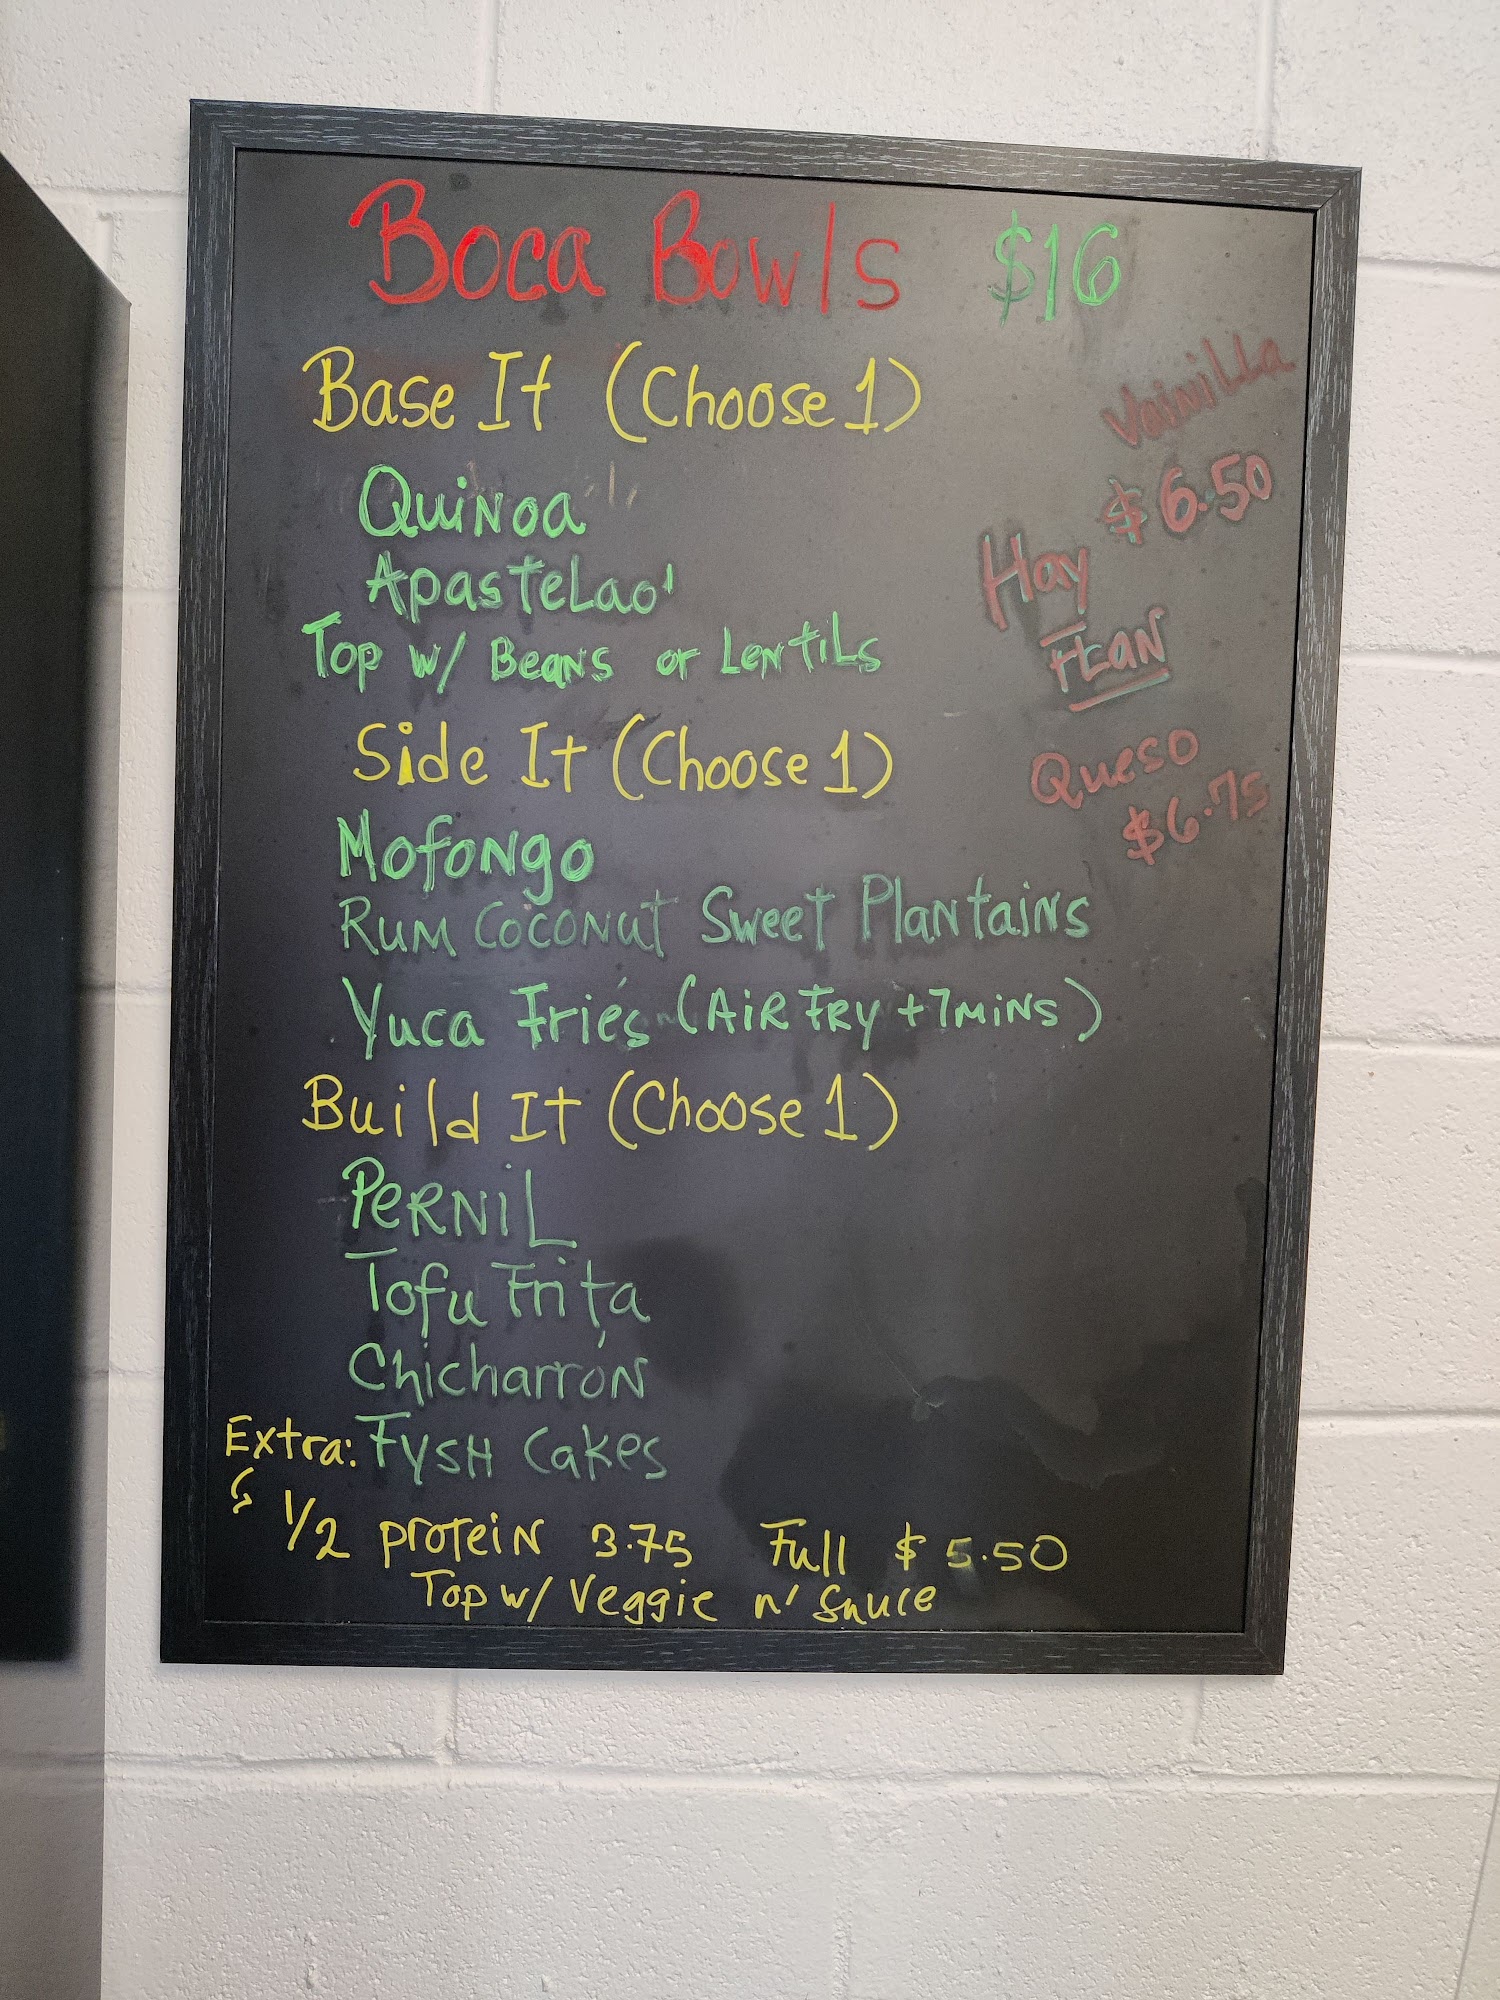 Boca Bowls $16
Base It (Choose 1)
Quinoa
Apastelao'
Top w/ Beans or Lentils
Side It (Choose 1)
Mofongo
Rum Coconut Sweet Plantains
Yuca Fries (Air Fry +7mins)
Build It (Choose 1)
Pernil
Tofu Frita
Chicharrón
Fysh Cakes
Extra:
1/2 protein 3.75 Full $5.50
Top w/ Veggie n' Sauce
Vainilla
$6.50
Hay
Flan
Queso
$6.75